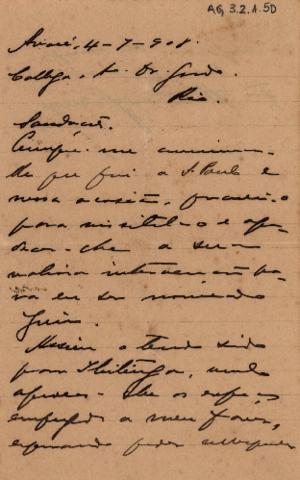 AG 3.2.1.50
4-7-908.
Collega, A. Dr.
Rio.
Saudações.
Cumpre-me communicar-
lhe que fui a S. Paulo e
nessa occasião, procurei-o
para visital-o e agra-
decer-lhe a sua
valiosa intervenção pa-
ra eu ser nomeado
Juiz.
Assim o tendo sido
para Ibitinga, venho
agradecer-lhe os esforços
a meu favor,
esperando poder